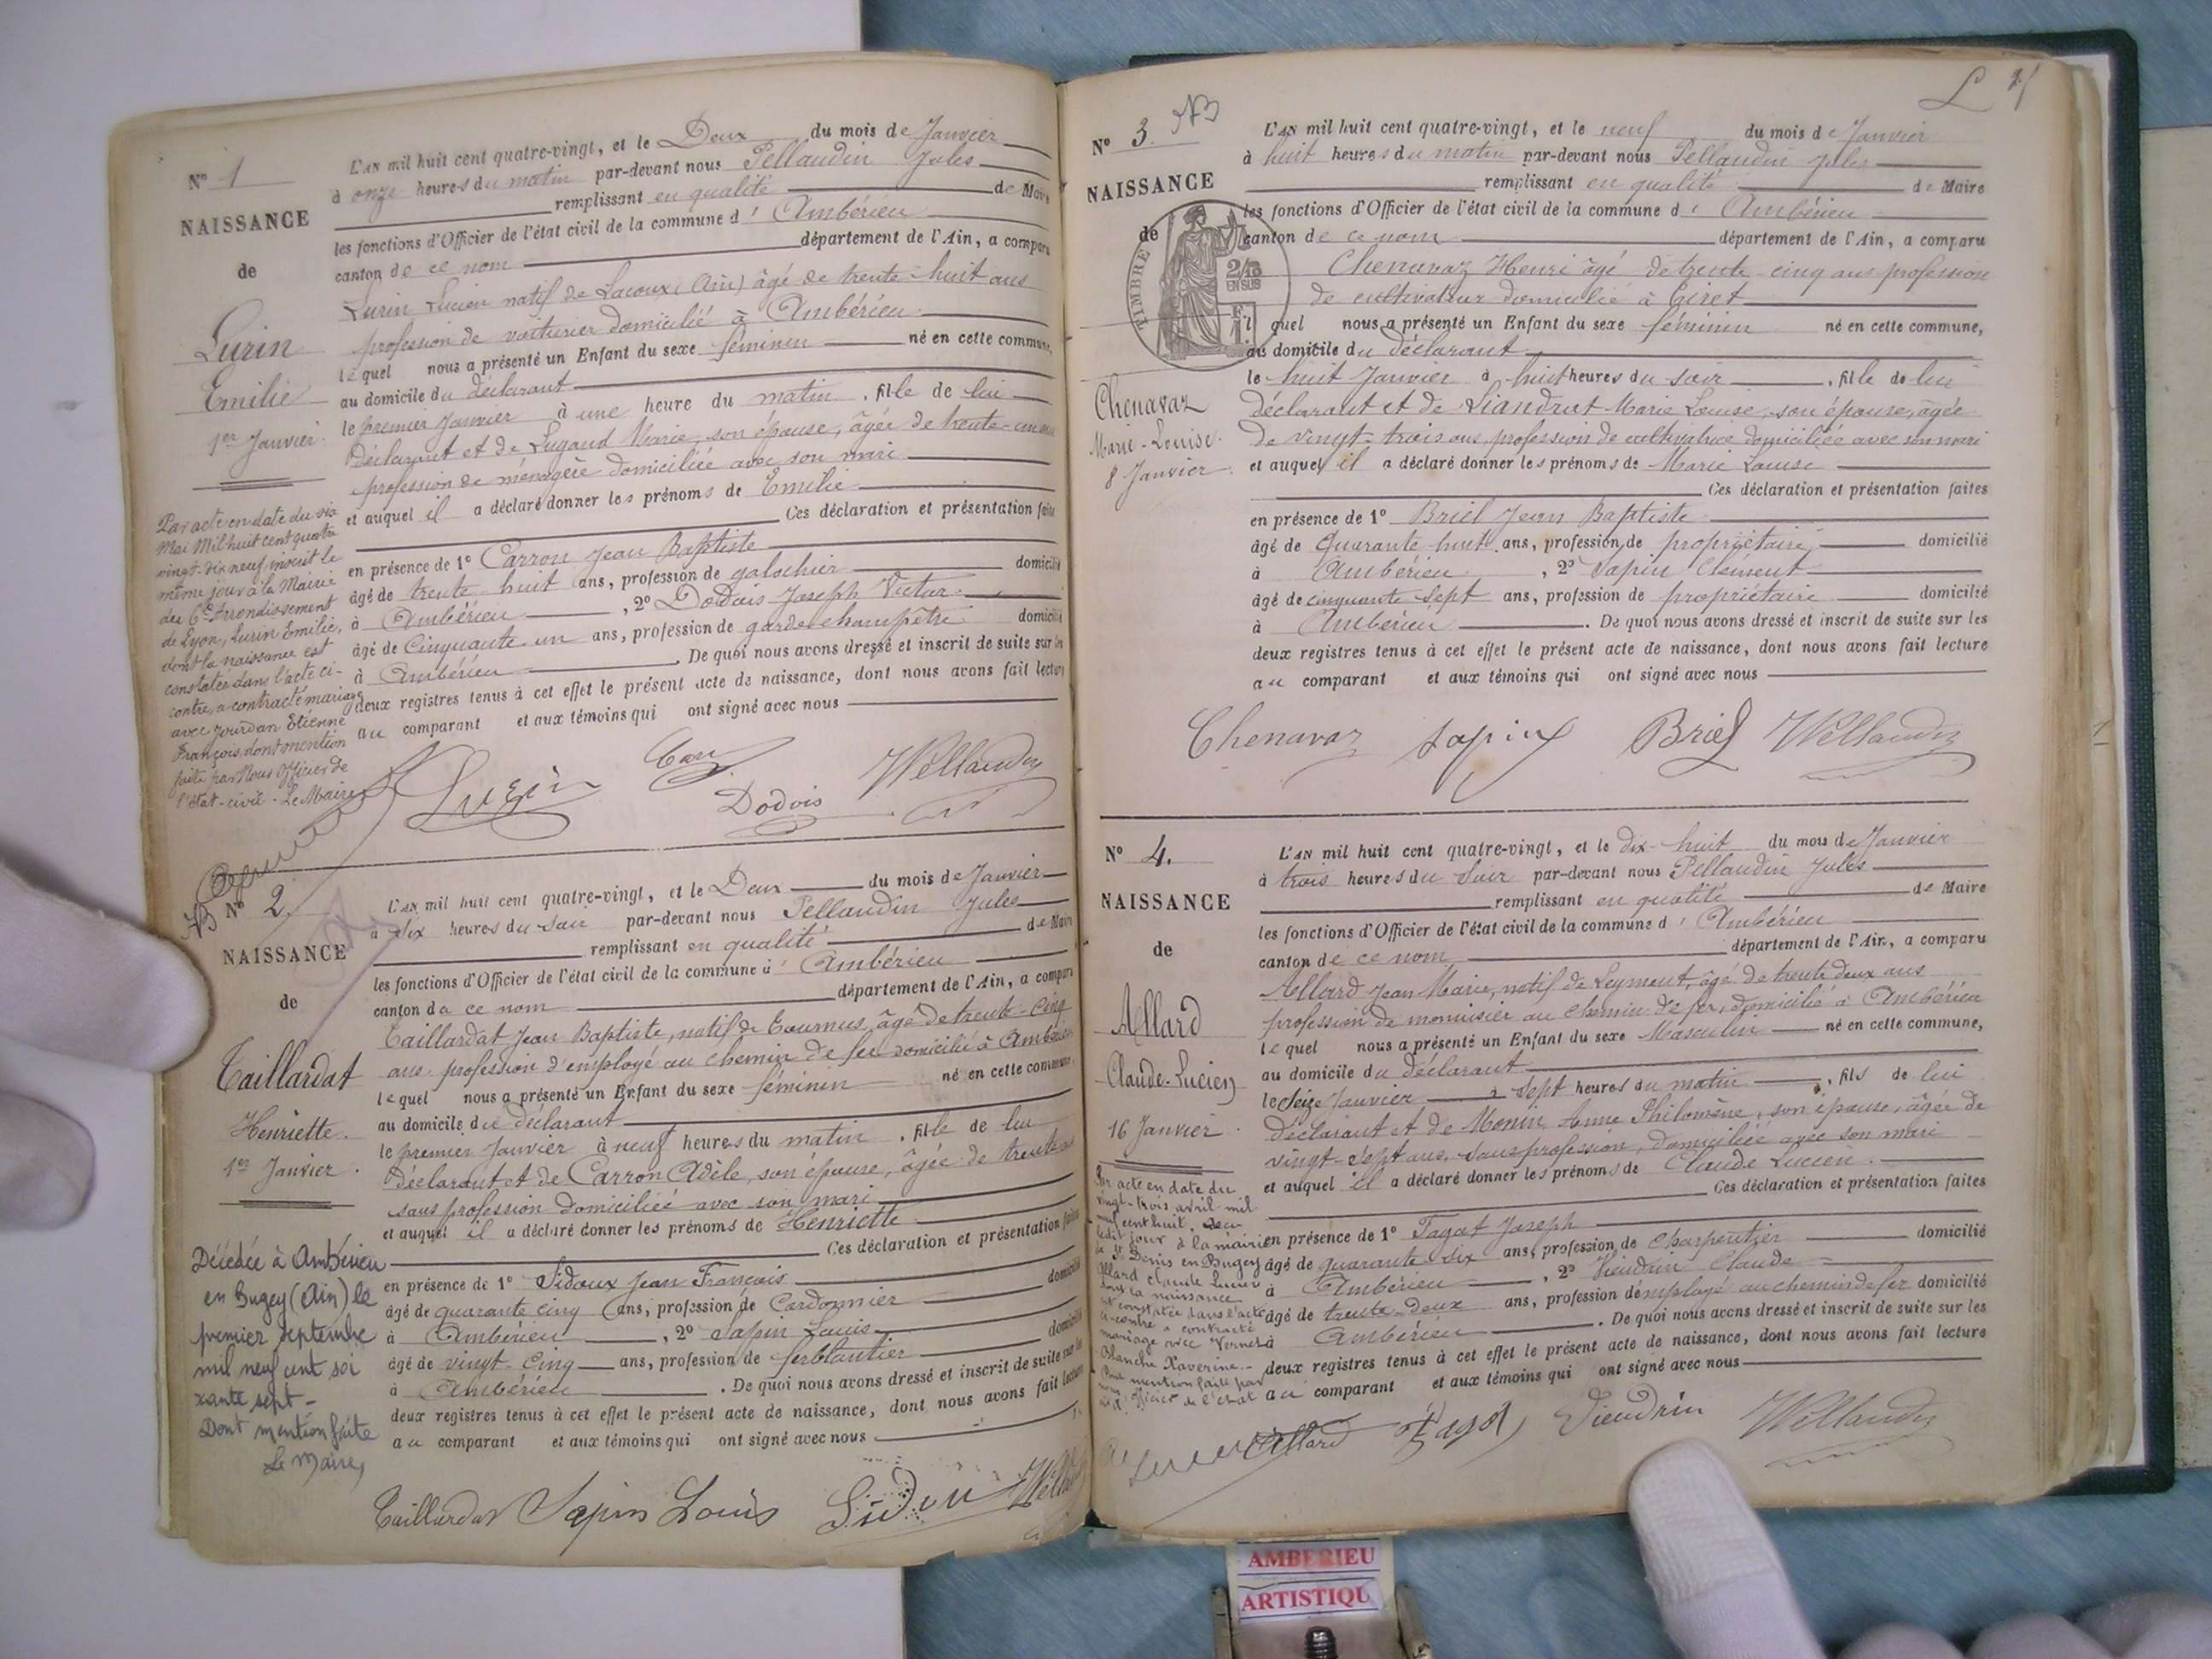 Nº 1
NAISSANCE
de
Lurin
Emilie
1er Janvier.
L'AN mil huit cent quatre-vingt, et le Deux du mois de Janvier
à onze heures du matin par-devant nous Pellaudin Jules
remplissant en qualité de Maire
les fonctions d'Officier de l'état civil de la commune d' Ambérieu
canton de ce nom département de l'Ain, a comparu
Lurin Lucien natif de Lacoux (Ain) âgé de trente-huit ans
profession de voiturier domicilié à Ambérieu
lequel nous a présenté un Enfant du sexe féminin né en cette commune,
au domicile du déclarant
le premier Janvier à une heure du matin, fille de lui
Déclarant et de Lugand Marie, son épouse, âgée de trente-un ans
profession de ménagère domiciliée avec son mari
et auquel il a déclaré donner les prénoms de Emilie
Ces déclaration et présentation faites
en présence de 1º Carron Jean Baptiste
âgé de trente huit ans, profession de galochier domicilié
à Ambérieu, 2º Dodois Joseph Victor
âgé de Cinquante un ans, profession de garde-champêtre domicilié
à Ambérieu. De quoi nous avons dressé et inscrit de suite sur les
deux registres tenus à cet effet le présent acte de naissance, dont nous avons fait lecture
au comparant et aux témoins qui ont signé avec nous
Par acte en date du six
Mai Mil huit cent quatre
vingt-dix neuf, inscrit le
même jour à la Mairie
du 6e Arrondissement
de Lyon, Lurin Emilie,
dont la naissance est
constatée dans l'acte ci-
contre, a contracté mariage
avec Jourdan Etienne
François, dont mention
faite par Nous Officier de
l'état-civil. Le Maire
Lurin
Dodois
Pellaudin
Nº 2.
NAISSANCE
de
Taillardat
Henriette.
1er Janvier.
L'AN mil huit cent quatre-vingt, et le Deux du mois de Janvier
à six heures du soir par-devant nous Pellaudin Jules
remplissant en qualité de Maire
les fonctions d'Officier de l'état civil de la commune d' Ambérieu
canton de ce nom département de l'Ain, a comparu
Taillardat Jean Baptiste, natif de Tournus, âgé de trente-cinq
ans profession d'employé au chemin de fer domicilié à Ambérieu
lequel nous a présenté un Enfant du sexe féminin né en cette commune,
au domicile du déclarant
le premier Janvier à neuf heures du matin, fille de lui
Déclarant et de Carron Adèle, son épouse, âgée de trente
sans profession domiciliée avec son mari
et auquel il a déclaré donner les prénoms de Henriette
Ces déclaration et présentation faites
en présence de 1º Sidoux Jean François
âgé de quarante cinq ans, profession de Cordonnier domicilié
à Ambérieu, 2º Sapin Louis
âgé de vingt-cinq ans, profession de ferblantier domicilié
à Ambérieu. De quoi nous avons dressé et inscrit de suite sur les
deux registres tenus à cet effet le présent acte de naissance, dont nous avons fait lecture
au comparant et aux témoins qui ont signé avec nous
Décédée à Ambérieu
en Bugey (Ain) le
premier septembre
mil neuf cent soi
xante sept -
Dont mention faite
Le Maire,
Taillardat Sapin Louis Sidoux Pellaudin
L
Nº 3.
NAISSANCE
de
TIMBRE
2/10
EN SUS
Chenavaz
Marie-Louise.
8 Janvier.
L'AN mil huit cent quatre-vingt, et le neuf du mois de Janvier
à huit heures du matin par-devant nous Pellaudin Jules
remplissant en qualité de Maire
les fonctions d'Officier de l'état civil de la commune d' Ambérieu
canton de ce nom département de l'Ain, a comparu
Chenavaz Henri âgé de trente-cinq ans profession
de cultivateur domicilié à Tiret
lequel nous a présenté un Enfant du sexe féminin né en cette commune,
au domicile du déclarant
le huit Janvier à huit heures du soir, fille de lui
Déclarant et de Liandrat Marie Louise, son épouse, âgée
de vingt-trois ans profession de cultivatrice domiciliée avec son mari
et auquel il a déclaré donner les prénoms de Marie Louise
Ces déclaration et présentation faites
en présence de 1º Briel Jean Baptiste
âgé de Quarante huit ans, profession de propriétaire domicilié
à Ambérieu, 2º Sapin Clément
âgé de cinquante sept ans, profession de propriétaire domicilié
à Ambérieu. De quoi nous avons dressé et inscrit de suite sur les
deux registres tenus à cet effet le présent acte de naissance, dont nous avons fait lecture
au comparant et aux témoins qui ont signé avec nous
Chenavaz Sapin Briel Pellaudin
Nº 4.
NAISSANCE
de
Allard
Claude-Lucien
16 Janvier.
L'AN mil huit cent quatre-vingt, et le dix-huit du mois de Janvier
à trois heures du soir par-devant nous Pellaudin Jules
remplissant en qualité de Maire
les fonctions d'Officier de l'état civil de la commune d' Ambérieu
canton de ce nom département de l'Ain, a comparu
Allard Jean Marie, natif de Leyment, âgé de trente deux ans
profession de menuisier au chemin de fer, domicilié à Ambérieu
lequel nous a présenté un Enfant du sexe Masculin né en cette commune,
au domicile du déclarant
le seize Janvier à sept heures du matin, fils de lui
Déclarant et de Monin Anne Philomène, son épouse, âgée de
vingt-sept ans, sans profession, domiciliée avec son mari
et auquel il a déclaré donner les prénoms de Claude Lucien
Ces déclaration et présentation faites
en présence de 1º Tagat Joseph
âgé de quarante-six ans, profession de charpentier domicilié
à Ambérieu, 2º Vieudrin Claude
âgé de trente-deux ans, profession d'employé au chemin de fer domicilié
à Ambérieu. De quoi nous avons dressé et inscrit de suite sur les
deux registres tenus à cet effet le présent acte de naissance, dont nous avons fait lecture
au comparant et aux témoins qui ont signé avec nous
Par acte en date du
vingt-trois avril mil
neuf cent huit,
ledit jour à la mairie
de St Denis en Bugey
Allard Claude Lucien
dont la naissance
est constatée dans l'acte
ci-contre a contracté
mariage avec
Blanche Xaverine.-
Pour mention faite par
nous, officier de l'état
Allard Tagat Vieudrin Pellaudin
AMBERIEU
ARTISTIQU